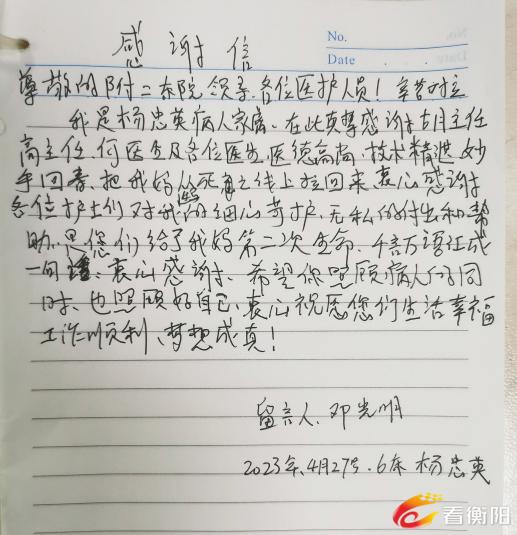 No.
Date
感谢信
尊敬的附二东院领导、各位医护人员！辛苦啦
我是杨忠英病人家属、在此真挚感谢胡主任
高主任、何医生及各位医生医德高尚、技术精进妙
手回春、把我妈从死亡之线上拉回来、衷心感谢
各位护士们对我妈的细心苛护、无私的付出和帮
助、是您们给了我妈第二次生命、千言万语汇成
一句、衷心感谢、希望你照顾病人的同
时、也照顾好自己、衷心祝愿您们生活幸福
工作顺利、梦想成真！
留言人、邓光明
2023年、4月27号、6床 杨忠英
看衡阳